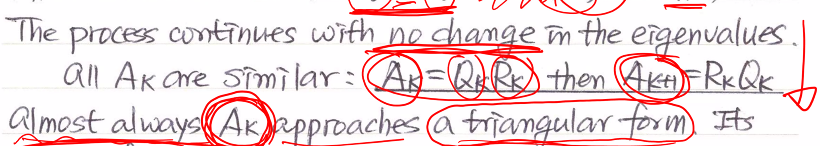 The process continues with no change in the eigenvalues.
All Ak are similar: Ak = QkRk then Ak+1 = RkQk
Almost always Ak approaches a triangular form. Its